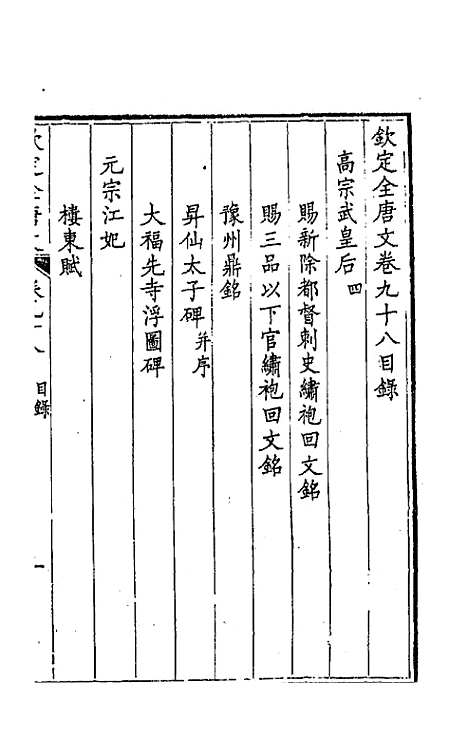 欽定全唐文卷九十八目錄
高宗武皇后四
賜新除都督刺史繡袍回文銘
賜三品以下官繡袍回文銘
豫州鼎銘
昇仙太子碑并序
大福先寺浮圖碑
元宗江妃
樓東賦
欽定全唐文 卷九十八 目錄 一